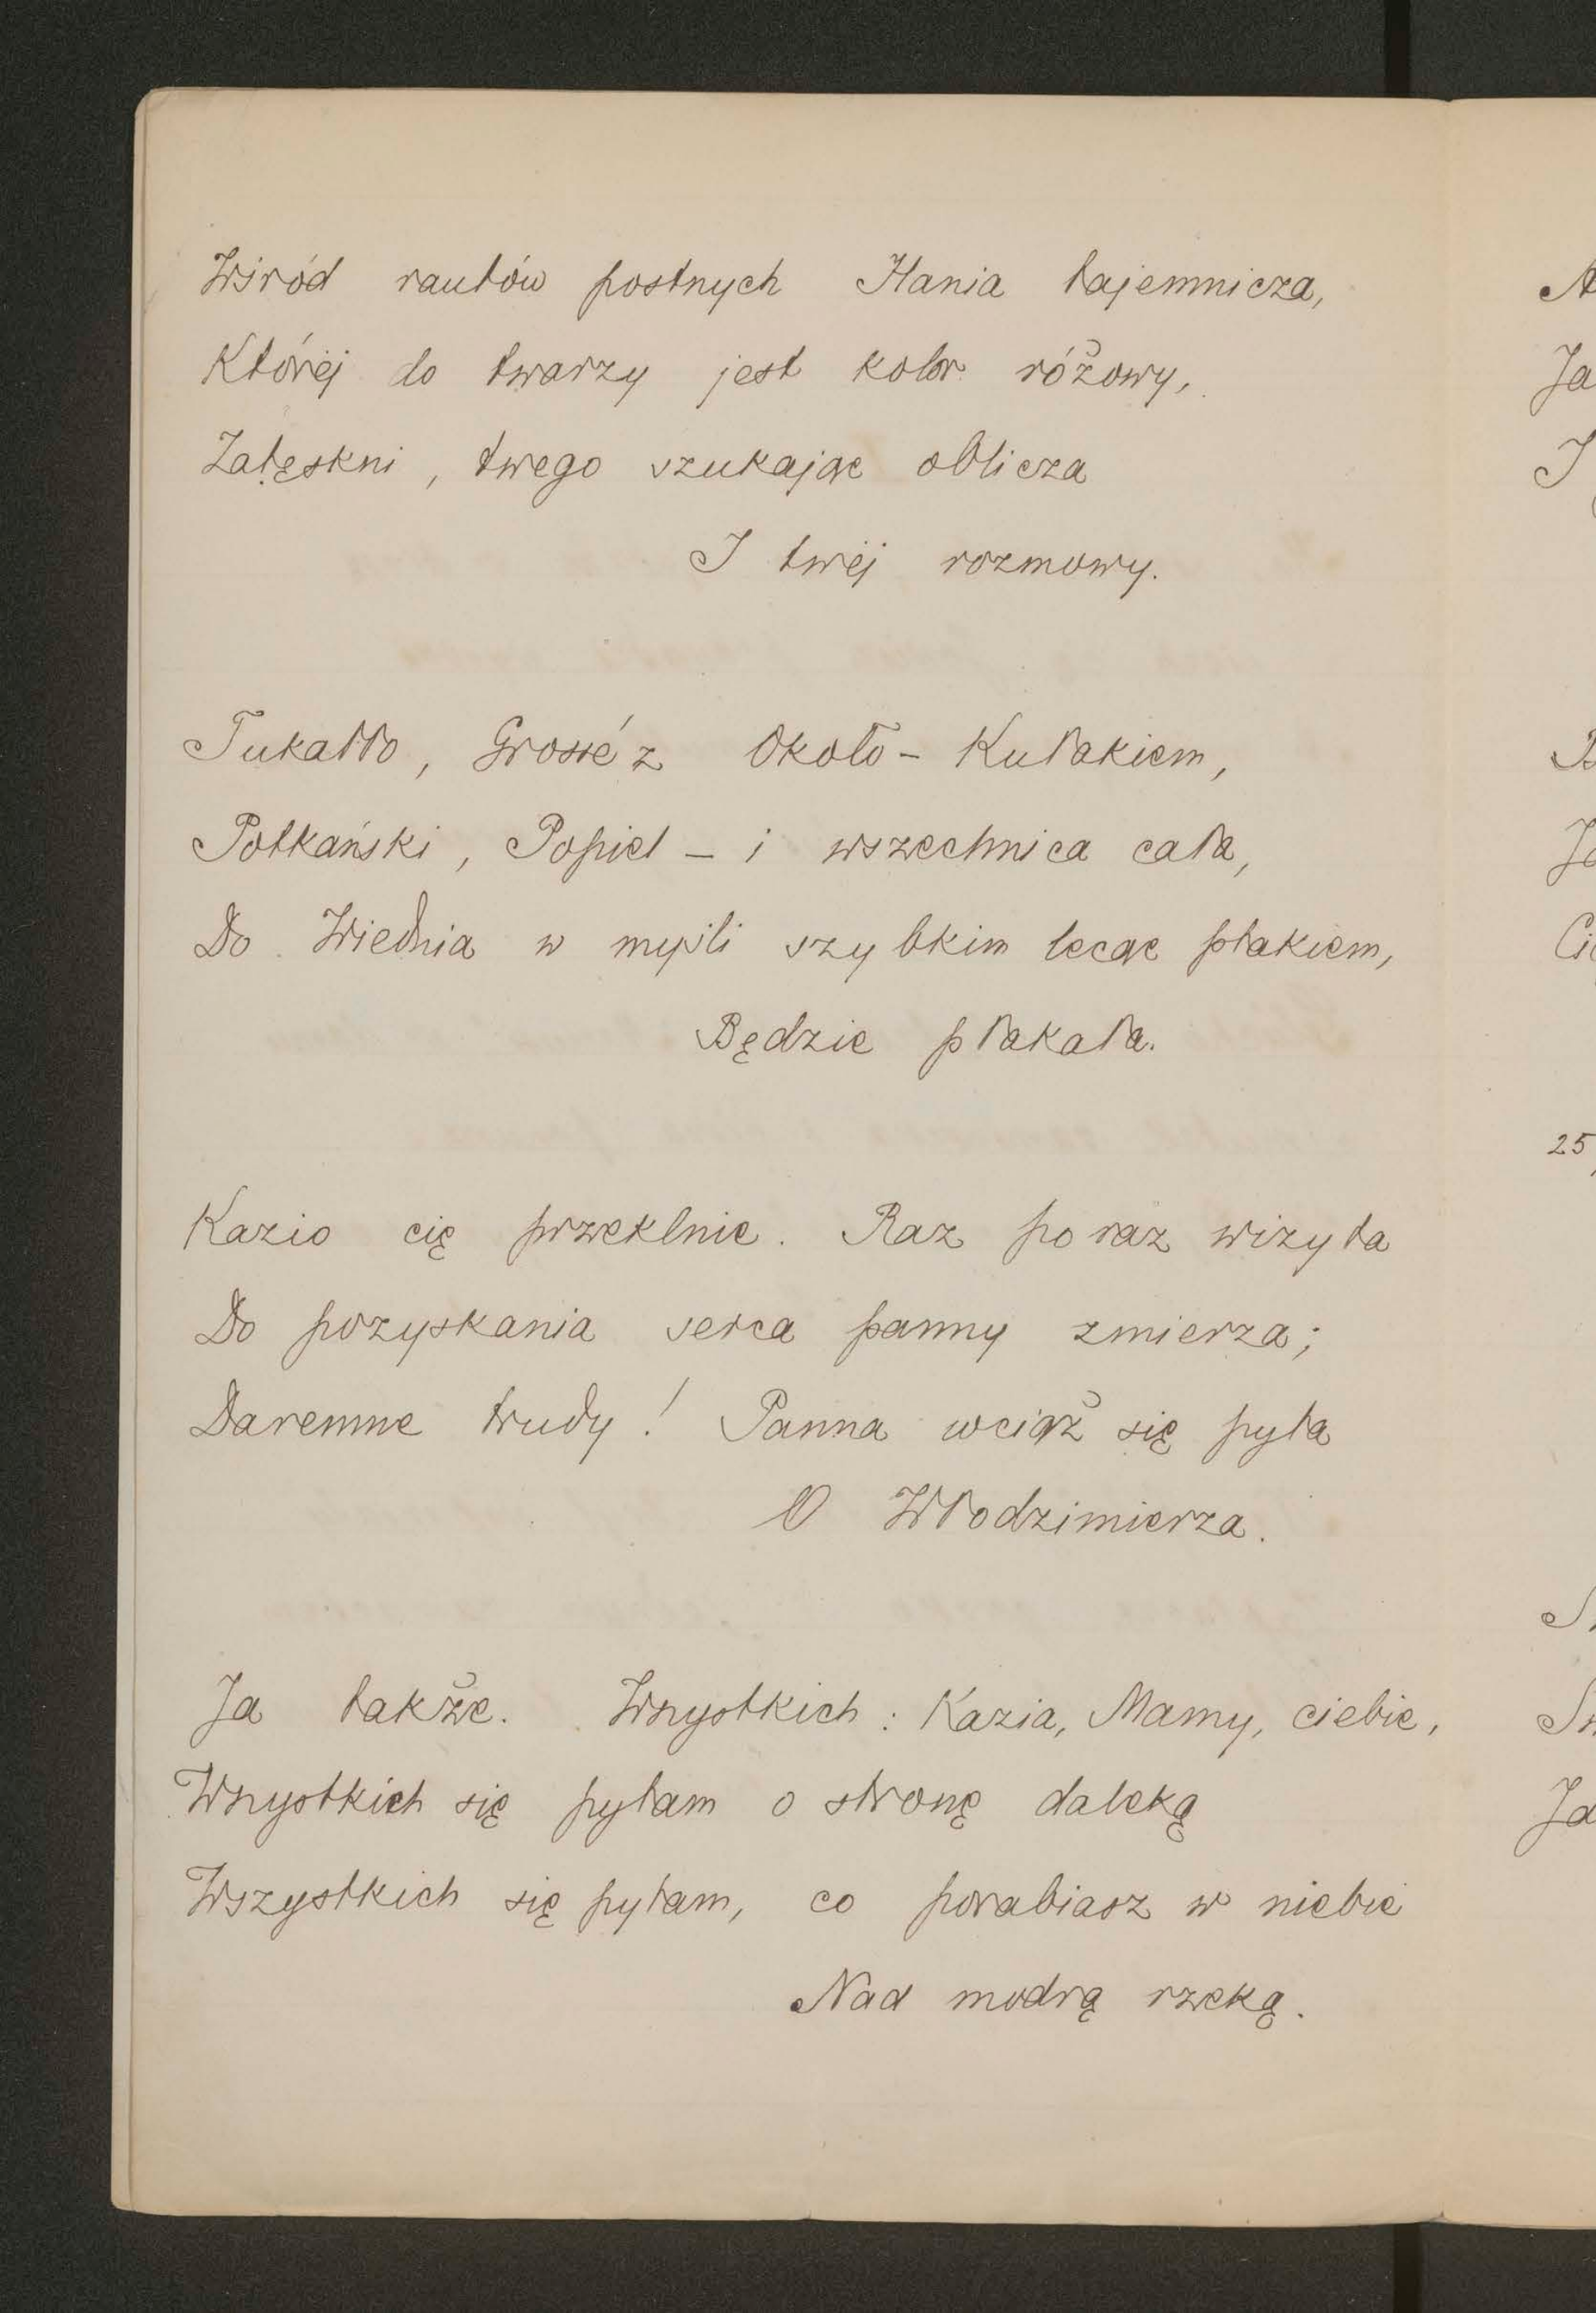 Wśród rautów postnych Hania tajemnicza,
Którėj do twarzy jest kolor różowy,
Zatęskni, twego szukając oblicza
I twėj rozmowy.
Tukałło, Grossé z Około-Kułakiem,
Potkański, Popiel - i wszechnica cała,
Do Wiednia w myśli szybkim lecąc ptakiem,
Będzie płakała.
Kazio cię przeklnie. Raz po raz wizyta
Do pozyskania serca panny zmierza;
Daremne trudy! Panna wciąż się pyta
O Włodzimierza.
Ja także. Wszystkich: Kazia, Mamy, ciebie,
Wszystkich się pytam o stronę daleką
Wszystkich się pytam, co porabiasz w niebie
Nad modrą rzeką.
25